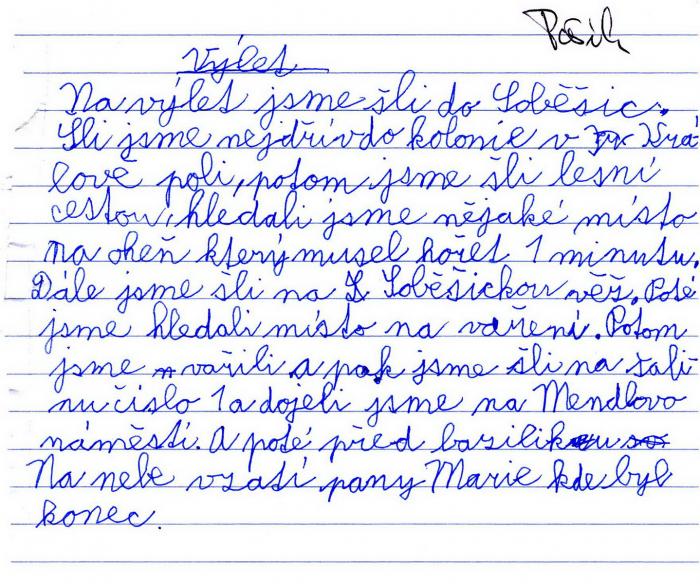 Pošik
Výlet
Na výlet jsme šli do Soběšic.
Šli jsme nejdřív do kolonie v Krá
lově poli, potom jsme šli lesní
cestou, hledali jsme nějaké místo
na oheň který musel hořet 1 minutu.
Dále jsme šli na Soběšickou věž. Poté
jsme hledali místo na vaření. Potom
jsme vařili a pak jsme šli na šali
nu číslo 1 a dojeli jsme na Mendlovo
náměstí. A poté před baziliku
Na nebe vzatí pany Marie kde byl
konec.